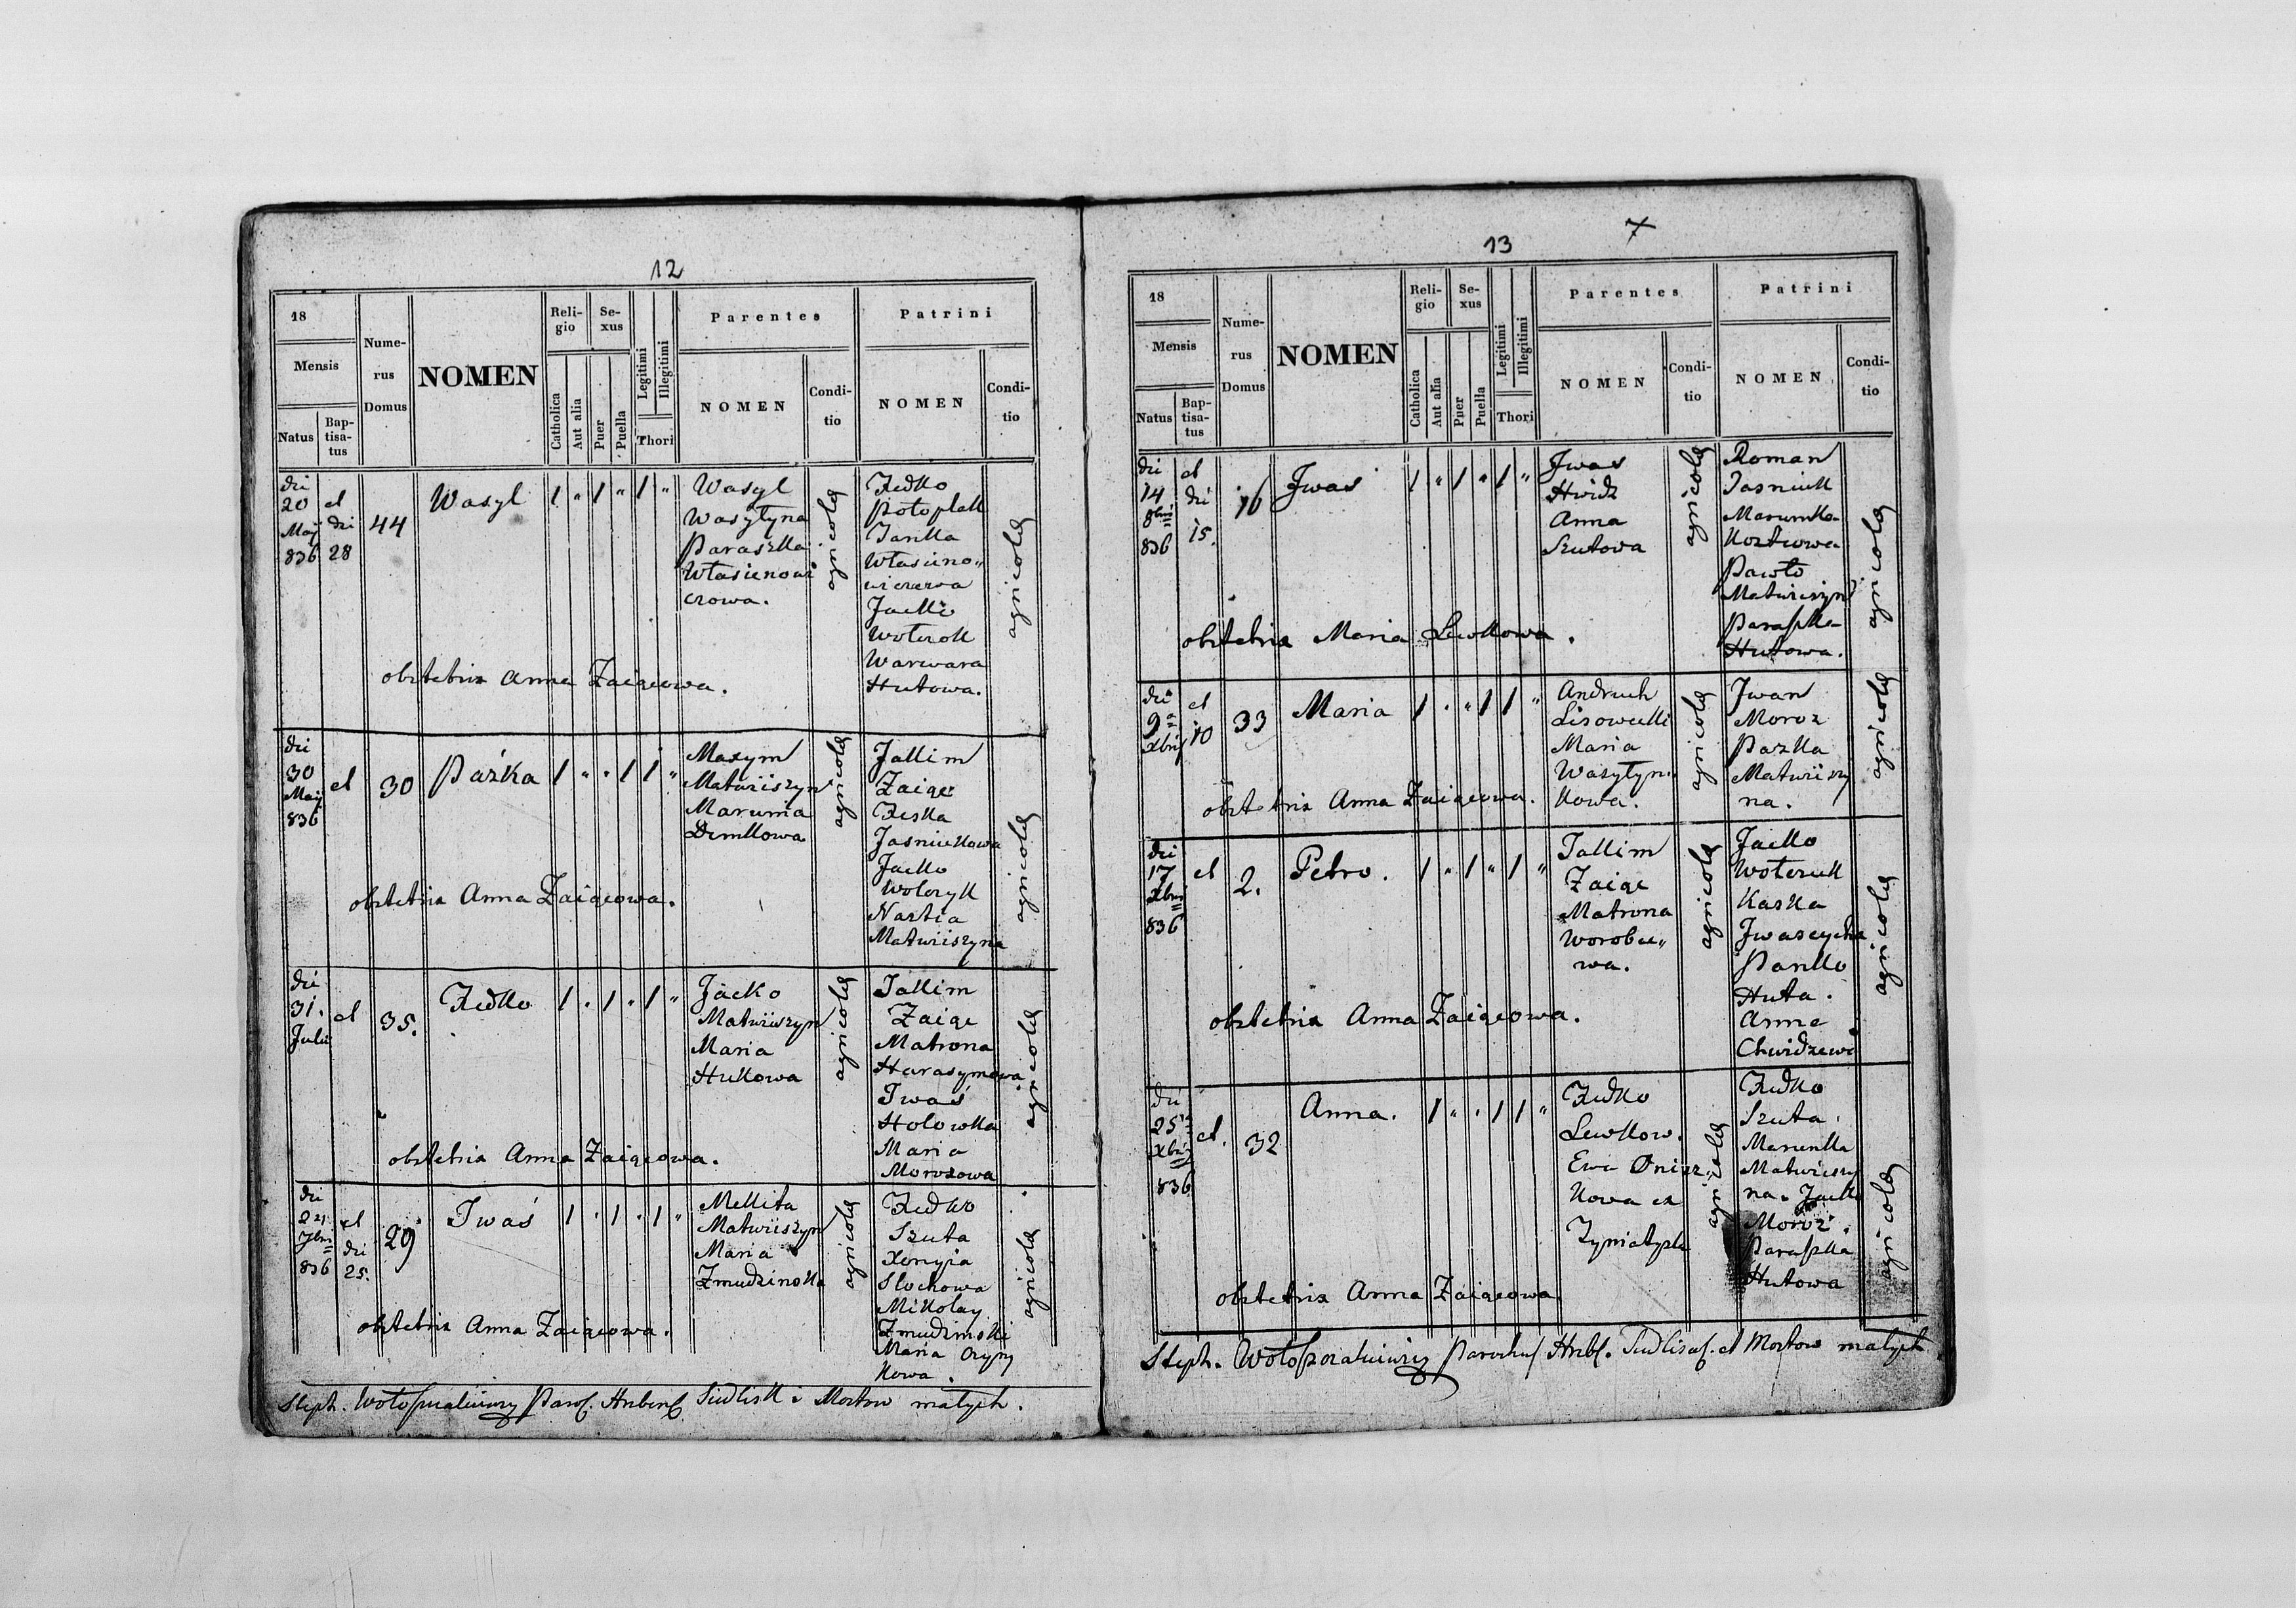 12
18
Mensis
Natus
Bap-
tisa-
tus
Nume-
rus
Domus
NOMEN
Reli-
gio
Catholica
Aut alia
Se-
xus
Puer
Puella
Legitimi
Illegitimi
Thori
Parentes
NOMEN
Condi-
tio
Patrini
NOMEN
Condi-
tio
die
20
Maij
836
et
die
28
44
Wasyl
1 " 1 " 1 "
Wasyl
Wasyłyna
Paraszka
Własienowi
czowa.
agricolę
Fedko
Potoplak
Jaśka
Własieno„
wiczowa
Jacko
Wołczok
Warwara
Hutowa.
agricolę
obstetrix Anna Zaięcowa.
die
30
Maij
836
et
30
Paźka
1 " " 1 1 "
Maxym
Matwiiszyn
Marunia
Demkowa
agricolę
Jakim
Zaięc
Feska
Jasniukowa
Jacko
Wolczyk
Nastia
Matwiiszyna
agricolę
obstetrix Anna Zaięcowa.
die
31.
Julii
et
35.
Fedko
1 " 1 " 1 "
Jacko
Matwiiszyn
Maria
Hukowa
agricolę
Jakim
Zaięc
Matrona
Harasymowa
Iwaś
Holowka
Maria
Morozowa
agricolę
obstetrix Anna Zaięcowa.
die
7bris
836
et
die
25.
29
Iwaś
1 " 1 " 1 "
Mekita
Matwiiszyn
Maria
Zmudzinska
agricolę
Fedko
Szuta
Xenyia
Slochowa
Mikolay
Zmudzinski
Maria
kowa.
agricolę
obstetrix Anna Zaięcowa.
małych.
13
7
18
Mensis
Natus
Bap-
tisa-
tus
Nume-
rus
Domus
NOMEN
Reli-
gio
Catholica
Aut alia
Se-
xus
Puer
Puella
Legitimi
Illegitimi
Thori
Parentes
NOMEN
Condi-
tio
Patrini
NOMEN
Condi-
tio
die
14
8bris
836
et
die
15.
16
Jwas
1 " 1 " 1 "
Jwas
Hwidz
Anna
Szutowa
agricolę
Roman
Jasniuk
Marunka
Koztowa
Pawło
Matwiiszyn
Paraska
Hutowa.
agricolę
obstetrix Maria Lewkowa.
die
9a
Xbris
et
10
33
Maria
1 " " 1 1 "
Andruch
Lisowecki
Maria
Wasyłyn„
kowa.
agricolę
Jwan
Moroz
Pazka
Matwiiszy
na.
agricolę
obstetrix Anna Zaięcowa.
die
17
Xbris
836
et
2.
Petro.
1 " 1 " 1 "
Jakim
Zaięc
Matrona
Worobce„
wa.
agricolę
Jacko
Wołczuk
Kaska
Jwascycha
Pańko
Huta.
Anna
Chwidzewa
agricolę
obstetrix Anna Zaięcowa.
die
25
Xbris
836
et.
32
Anna.
1 " " 1 1 "
Fedko
Lewkow.
Ewa Onisz„
kowa ex
agricolę
Fedko
Szuta.
Marunka
Matwiiszy
na. Jacko
Moroz.
Paraska
Hutowa
agricolę
obstetrix Anna Zaięcowa
małych